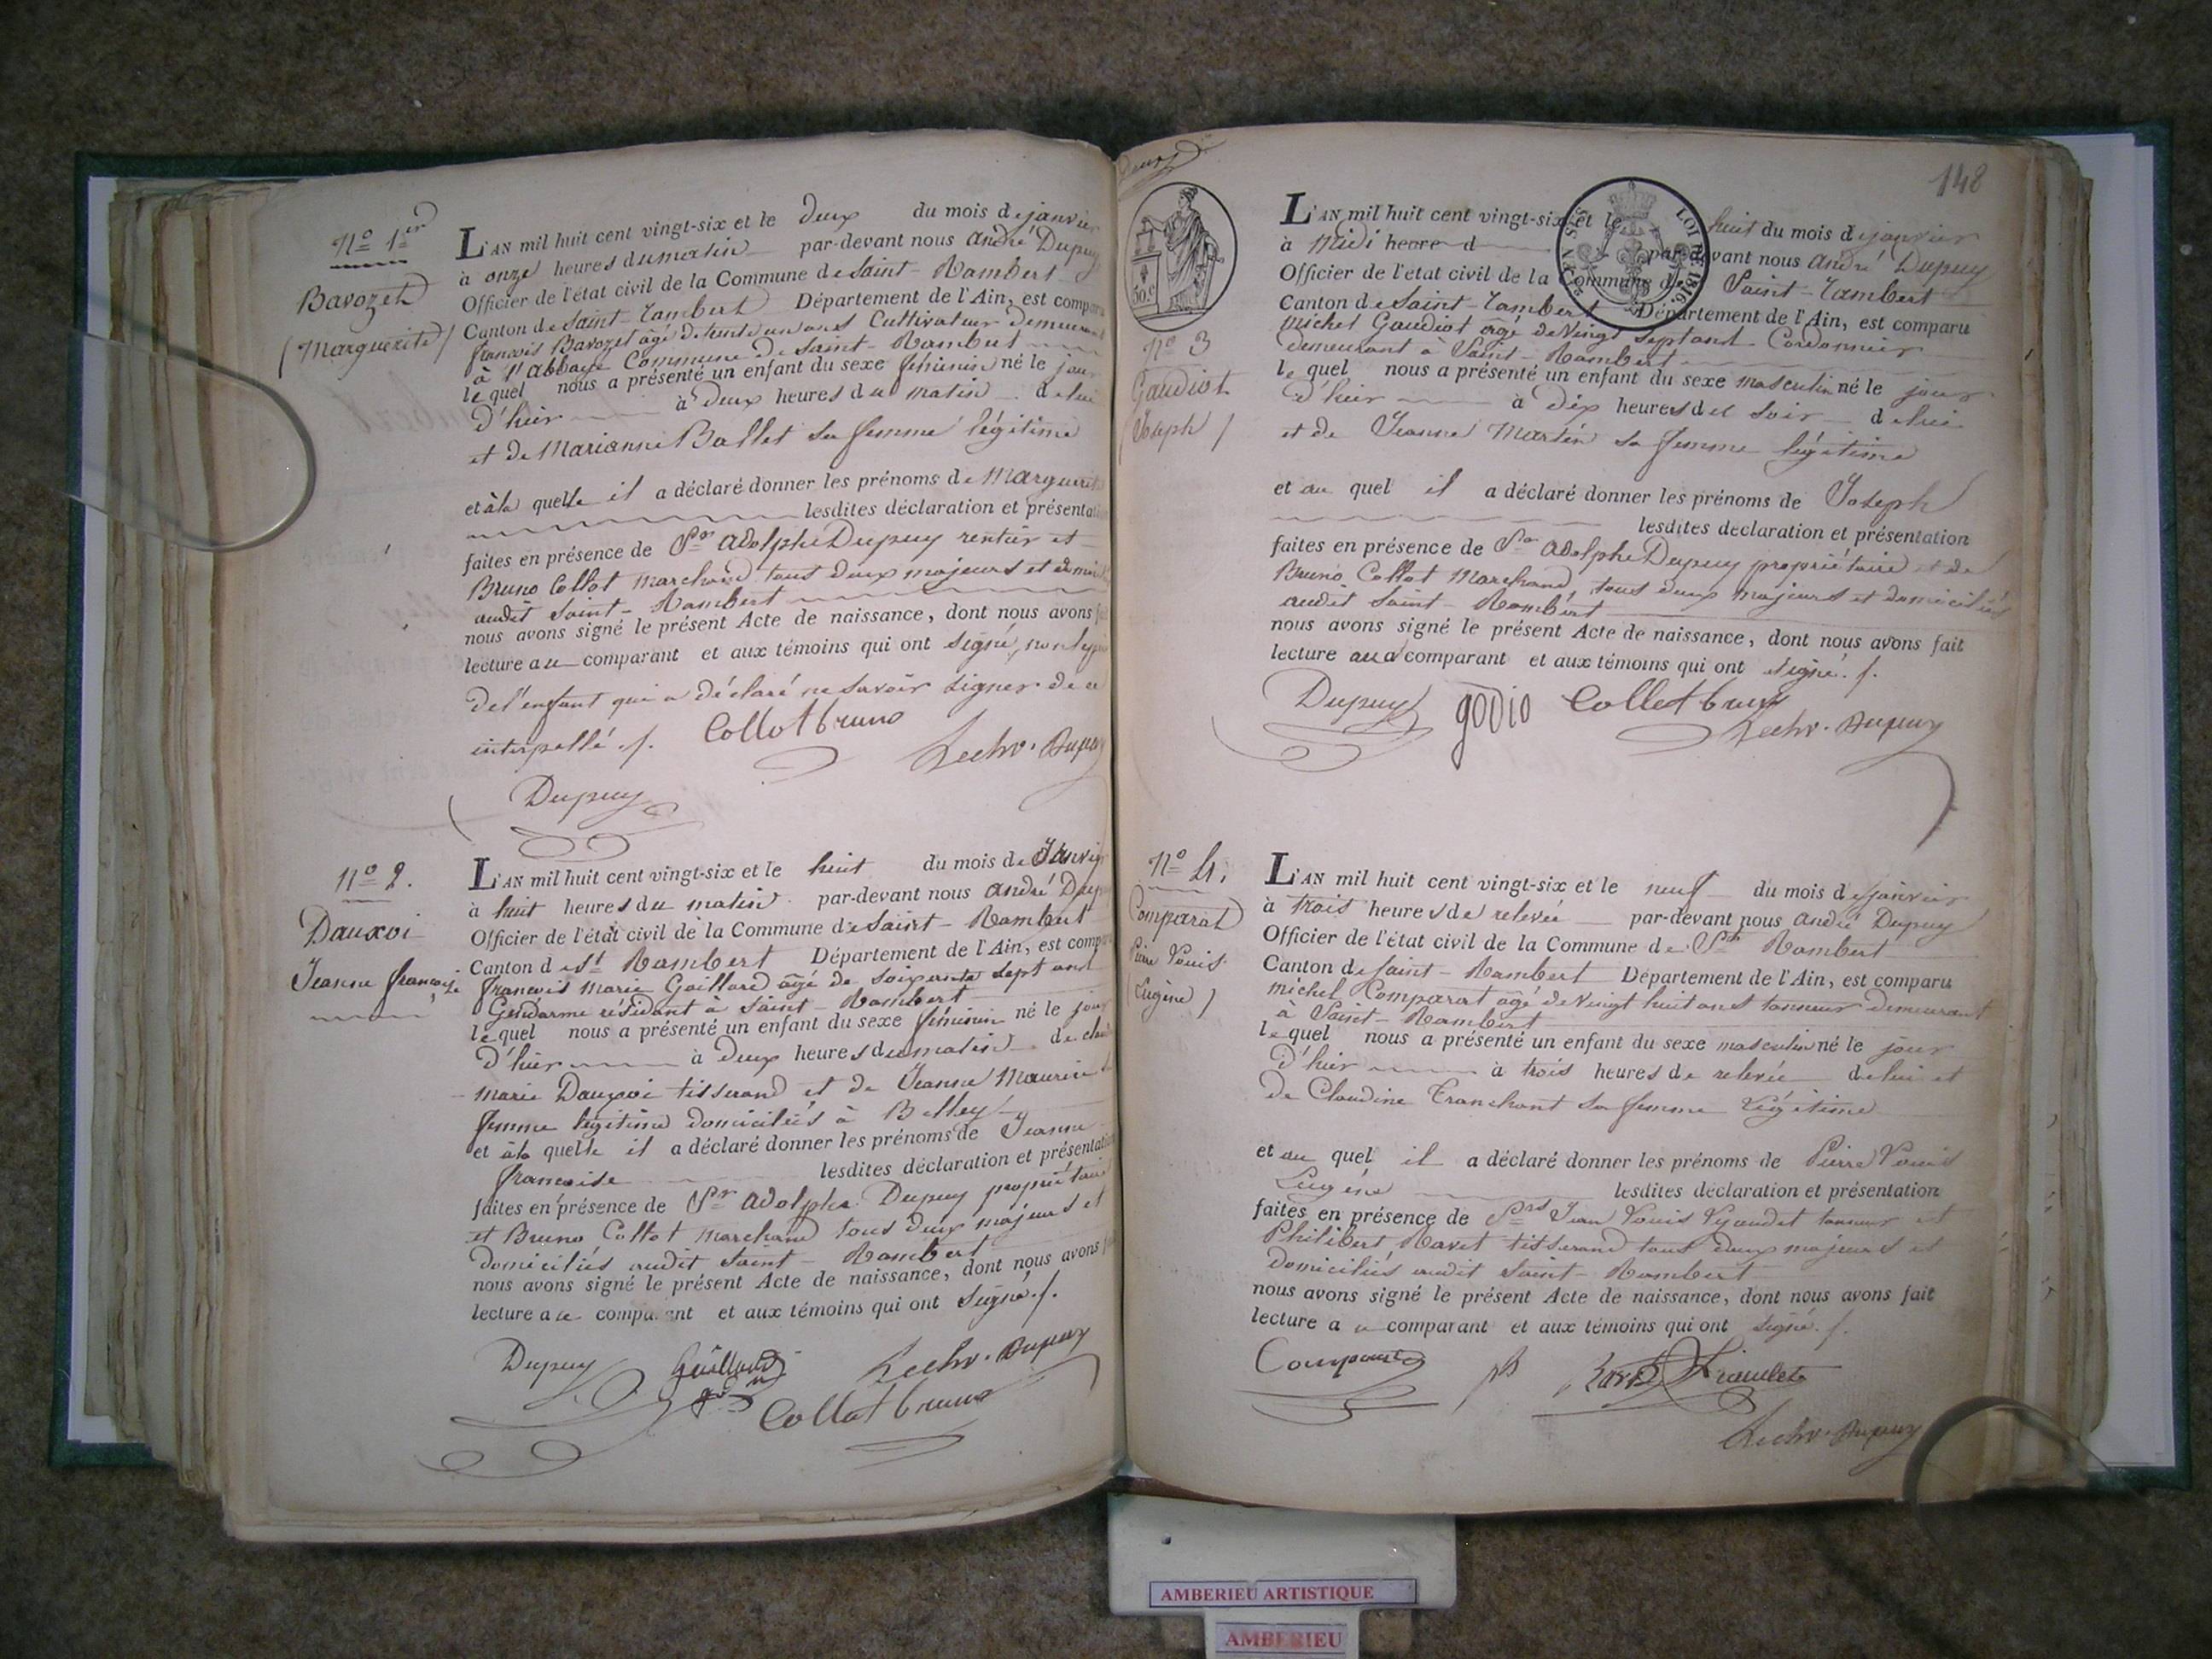 N° 1er
Bavozet
(Marguerite)
L'AN mil huit cent vingt-six et le deux du mois de janvier
à onze heures du matin par-devant nous André Dupuy
Officier de l'état civil de la Commune de Saint-Rambert
Canton de Saint-Rambert Département de l'Ain, est comparu
françois Bavozet âgé de trente un ans Cultivateur demeurant
à l'abbaye Commune de Saint-Rambert
le quel nous a présenté un enfant du sexe féminin né le jour
d'hier à deux heures du matin de lui
et de Marianne Ballet sa femme légitime
et à la quelle il a déclaré donner les prénoms de Marguerite
lesdites déclaration et présentation
faites en présence de Sr adolphe Dupuy rentier et
Bruno Collot marchand tous deux majeurs et domiciliés
audit Saint-Rambert
nous avons signé le présent Acte de naissance, dont nous avons fait
lecture au comparant et aux témoins qui ont signé, non le père
de l'enfant qui a déclaré ne savoir signer de ce
interpellé ./.
Collot bruno
Dupuy
Dupuy
N° 2.
Dauxoi
Jeanne françoise
L'AN mil huit cent vingt-six et le huit du mois de Janvier
à huit heures du matin par-devant nous André Dupuy
Officier de l'état civil de la Commune de Saint-Rambert
Canton de St Rambert Département de l'Ain, est comparu
françois marie Gaillard âgé de soixante sept ans
Gendarme résidant à Saint-Rambert
le quel nous a présenté un enfant du sexe féminin né le jour
d'hier à deux heures du matin de
marie Dauxoi tisserand et de Jeanne Maurice sa
femme légitime domiciliés à Belley
et à la quelle il a déclaré donner les prénoms de Jeanne
françoise lesdites déclaration et présentation
faites en présence de Sr adolphe Dupuy propriétaire
et Bruno Collot marchand tous deux majeurs et
domiciliés audit Saint-Rambert
nous avons signé le présent Acte de naissance, dont nous avons fait
lecture au comparant et aux témoins qui ont signé ./.
Dupuy Gaillard Dupuy
Collot bruno
148
50 c
LOI DE 1816
N° 3
Gaudiot
(Joseph)
L'AN mil huit cent vingt-six et le huit du mois de janvier
à Midi heure d par-devant nous André Dupuy
Officier de l'état civil de la Commune de Saint-Rambert
Canton de Saint-Rambert Département de l'Ain, est comparu
michel Gaudiot âgé de Vingt sept ans Cordonnier
demeurant à Saint-Rambert
le quel nous a présenté un enfant du sexe masculin né le jour
d'hier à dix heures du soir de lui
et de Jeanne Martin sa femme légitime
et au quel il a déclaré donner les prénoms de Joseph
lesdites declaration et présentation
faites en présence de Sr adolphe Dupuy propriétaire et de
Bruno Collot Marchand, tous deux majeurs et domiciliés
audit Saint-Rambert
nous avons signé le présent Acte de naissance, dont nous avons fait
lecture au comparant et aux témoins qui ont signé ./.
Dupuy godio Collot bruno
Dupuy
N° 4.
Comparat
Pierre Louis
Eugène)
L'AN mil huit cent vingt-six et le neuf du mois de janvier
à trois heures de relevée par-devant nous André Dupuy
Officier de l'état civil de la Commune de St Rambert
Canton de Saint-Rambert Département de l'Ain, est comparu
michel Comparat âgé de Vingt huit ans tanneur demeurant
à Saint-Rambert
le quel nous a présenté un enfant du sexe masculin né le jour
d'hier à trois heures de relevée de lui et
de Claudine Tranchant sa femme légitime
et au quel il a déclaré donner les prénoms de Pierre Louis
Eugène lesdites déclaration et présentation
faites en présence de Srs Jean Louis tanneur et
Philibert Ravet tisserand tous deux majeurs et
domiciliés audit Saint-Rambert
nous avons signé le présent Acte de naissance, dont nous avons fait
lecture au comparant et aux témoins qui ont signé ./.
Comparat ph
Dupuy
AMBERIEU ARTISTIQUE
AMBERIEU